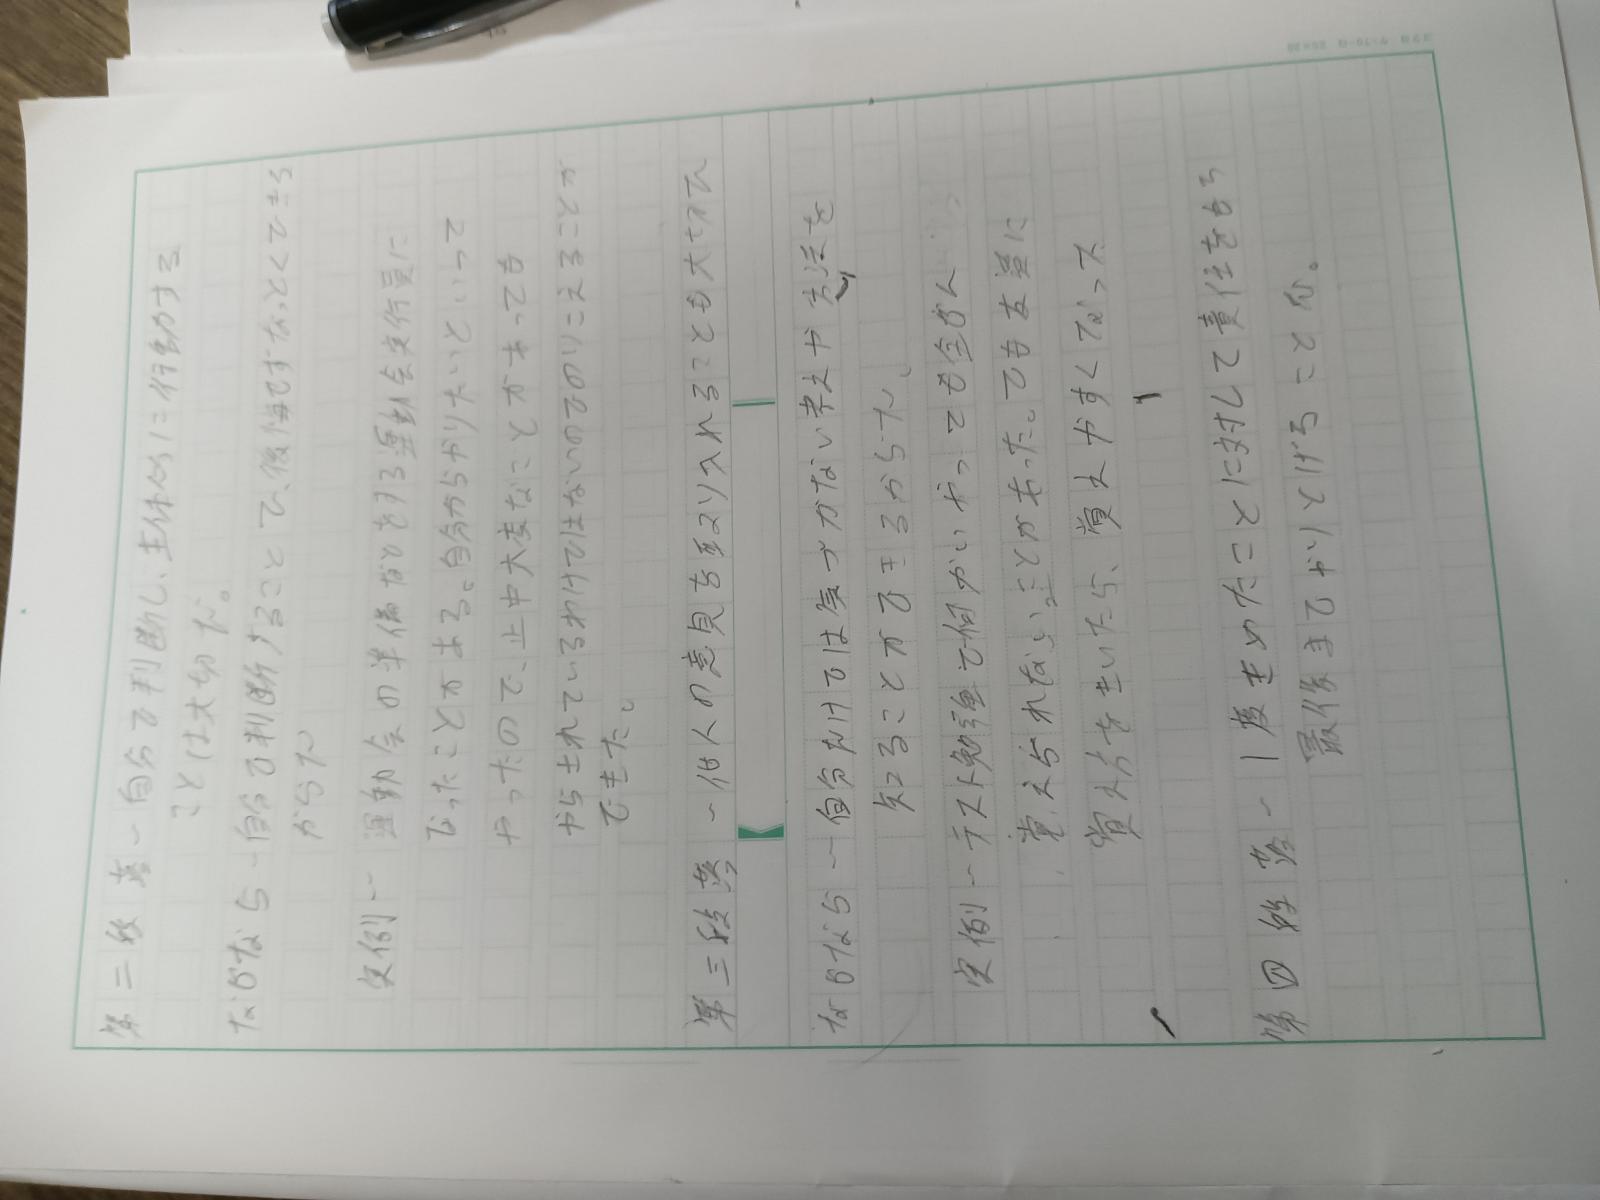 第二段落ー自分で判断し、主体的に行動する
ことは大切だ。
なぜなら ー自分で判断することで、後悔せずなっとくできる
からだ
実例ー運動会の準備などをする運動会実行員に
なったことがある。自分からやりたいといって
やったので、途中大変なことがあっても
やらされているわけではないのでのりこえることが
できた。
第三段落ー他人の意見を取り入れることも大せつで
なぜならー自分だけでは気づかない考えや方法を
知ることができるからだ。
実例ーテスト勉強で何かいやっても全ぜん
覚えられないことがあった。でも友達に
覚え方をきいたら、覚えやすくなった
第四段落ー1度きめたことに対して責任をもち
最後までやりとげること が。